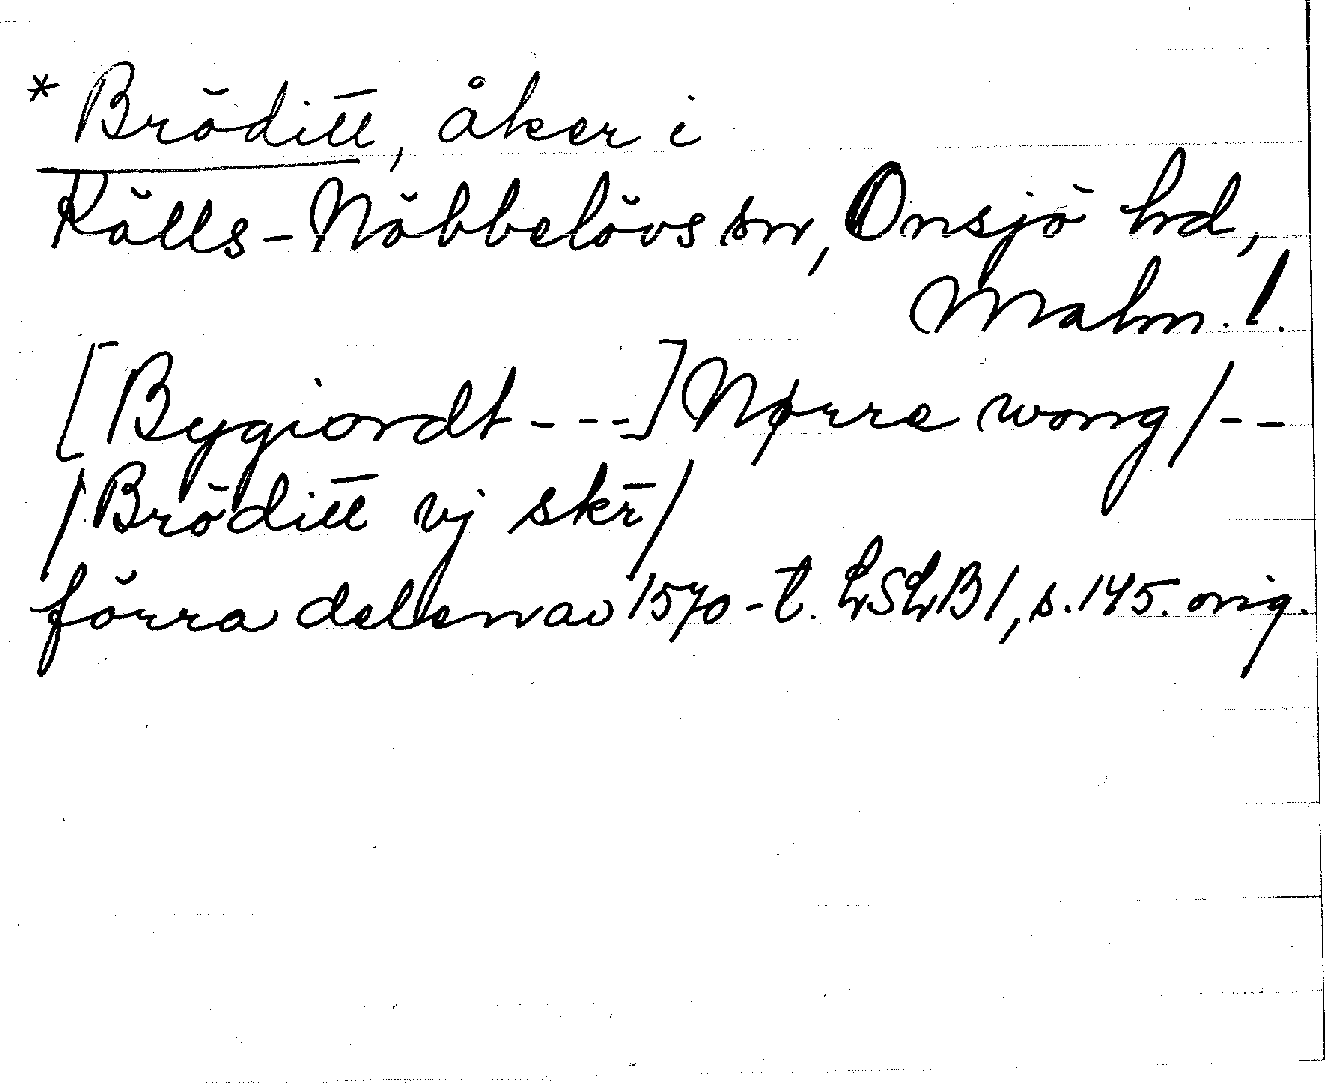 * Bröditt, åker i
Källs-Nöbbelövs sn, Onsjö hd,
Malm. l.
[Bygiordt - - -] Nørre wong / - -
/ Bröditt vj skr̄ /
förra delen av 1570-t. LSLB 1, s. 145. orig.